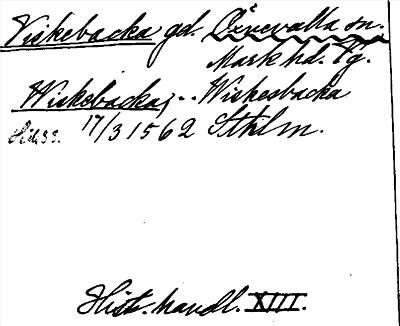 Viskebacka gd. Örevalla sn.
Mark hd. Vg.
Wiskebacka; .. Wiskesbacka
17/3 1562 Sthlm.
Hist. handl. XIII.